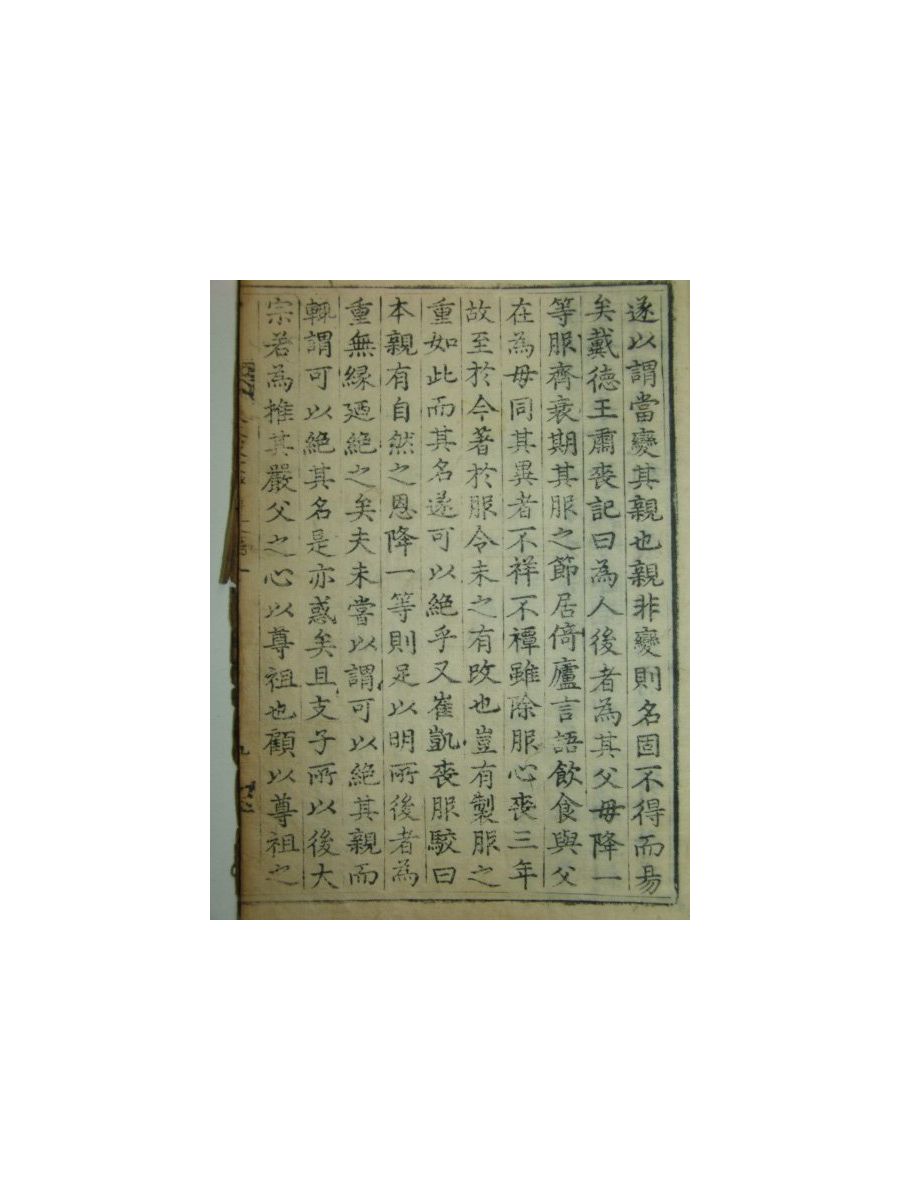 遂以謂當變其親也親非變則名固不得而易
矣戴德王肅喪記曰為人後者為其父母降一
等服齊衰期其服之節居倚廬言語飲食與父
在為母同其異者不祥不禫雖除服心喪三年
故至於今著於服令未之有改也豈有製服之
重如此而其名遂可以絕乎又崔凱喪服駁曰
本親有自然之恩降一等則足以明所後者為
重無緣廼絕之矣夫未嘗以謂可以絕其親而
輒謂可以絕其名是亦惑矣且支子所以後大
宗者為推其嚴父之心以尊祖也顧以尊祖之